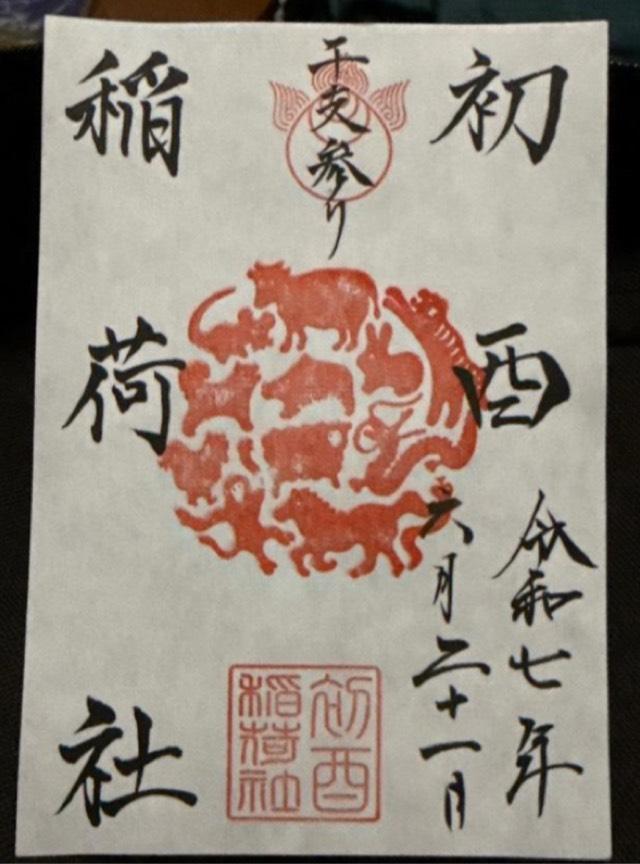 初酉
令和七年
六月二十一日
干支参り
稲荷社
初酉
稲荷社